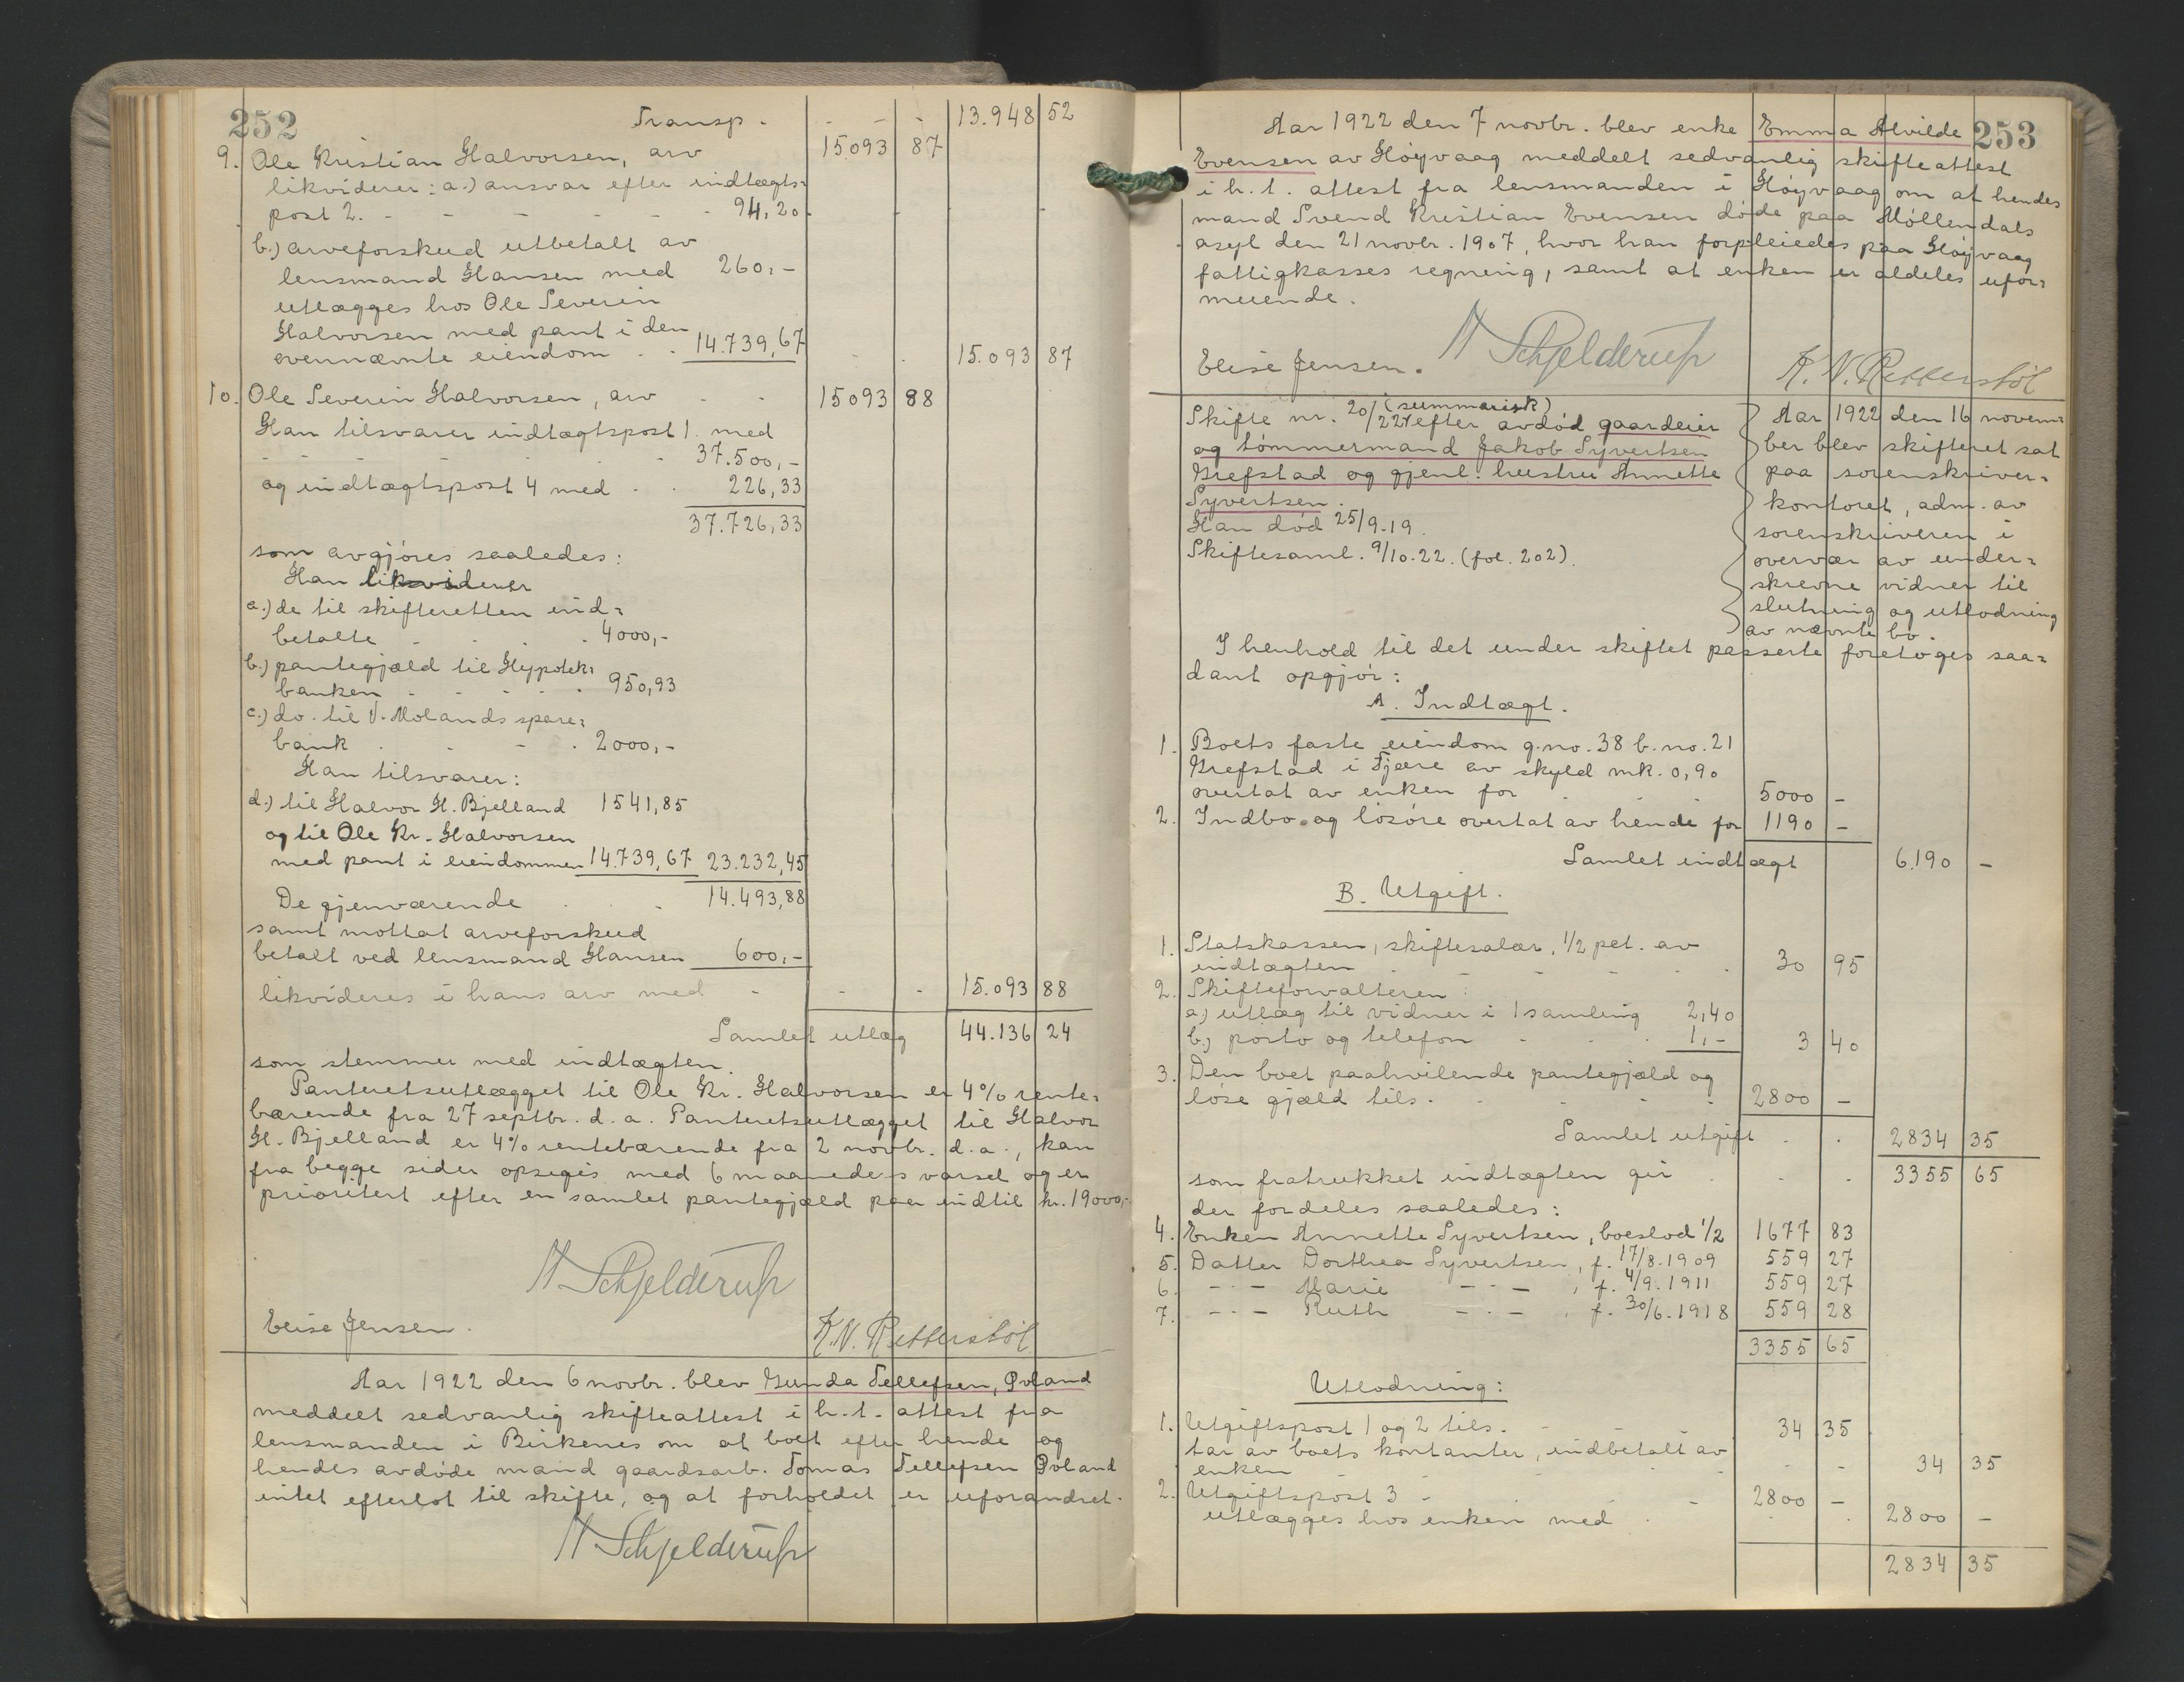 252
Transp. - - - 13.948 52
9. Ole Kristian Halvorsen, arv 15093 87
likviderer: a.) ansvar efter indtægts=
post 2. - - - - - 94,20
b.) arveforskud utbetalt av
lensmand Hansen med 260,-
utlægges hos Ole Severin
Halvorsen med pant i den
ovennævnte eiendom . . 14.739,67 - . 15.093 87
10. Ole Severin Halvorsen, arv - - 15093 88
Han tilsvarer indtægtspost 1. med
- - - - - - 37.500,-
og indtægtspost 4 med . . 226,33
37.726,33
som avgjøres saaledes:
Han likviderer
a.) de til skifteretten ind=
betalte . . . 4000,-
b.) pantegjæld til Hypotek=
banken - - - . 950,93
c.) do. til V. Molands spare=
bank . - - . 2000,-
Han tilsvarer:
d.) til Halvor H. Bjelland 1541,85
og til Ole Kr. Halvorsen
med pant i eiendommen 14.739,67 23.232,45
De gjenværende . . 14.493,88
samt mottat arveforskud
betalt ved lensmand Hansen 600,-
likvideres i hans arv med - - - 15.093 88
Samlet utlæg 44.136 24
som stemmer med indtægten.
Panteretsutlægget til Ole Kr. Halvorsen er 4% rente=
bærende fra 27 septbr. d.a. Panteretsutlægget til Halvor
H. Bjelland er 4% rentebærende fra 2 novbr. d.a., kan
fra begge sider opsiges med 6 maaneders varsel og er
prioritert efter en samlet pantegjæld paa indtil kr. 19000,-
N Schjelderup
Elise Jensen. K.N. Retterstøl
Aar 1922 den 6 novbr. blev Gunda Tellefsen, Øvland
meddelt sedvanlig skifteattest i h.t. attest fra
lensmanden i Birkenes om at boet efter hende og
hendes avdøde mand gaardsarb. Tomas Tellefsen Øvland
intet efterlot til skifte, og at forholdet er uforandret.
N Schjelderup
253
Aar 1922 den 7 novbr. blev enke Emma Alvilde
Evensen av Høyvaag meddelt sedvanlig skifteattest
i h.t. attest fra lensmanden i Høyvaag om at hendes
mand Svend Kristian Evensen døde paa Møllendals
asyl den 21 novbr. 1907, hvor han forpleiedes paa Høyvaag
fattigkasses regning, samt at enken er aldeles ufor=
muende.
N Schjelderup
Elise Jensen. K.N. Retterstøl
Skifte nr. 20/22 (summarisk) efter avdød gaardeier
og tømmermand Jakob Syvertsen
Grefstad og gjenl. hustru Annette
Syvertsen.
Han død 25/9.19.
Skiftesaml. 9/10.22. (fol. 202).
Aar 1922 den 16 novem=
ber blev skifteret sat
paa sorenskriver=
kontoret, adm. av
sorenskriveren i
overvær av under=
skrevne vidner til
slutning og utlodning
av nævnte bo.
I henhold til det under skiftet passerte foretoges saa=
dant opgjør:
A. Indtægt.
1. Boets faste eiendom g.no. 38 b.no. 21
Grefstad i Fjære av skyld mk. 0,90
overtat av enken for . . 5000 -
2. Indbo og løsøre overtat av hende for 1190 -
Samlet indtægt 6.190 -
B. Utgift.
1. Statskassen, skiftesalær, 1/2 pct. av
indtægten . . - - . . 30 95
2. Skifteforvalteren :
a.) utlæg til vidner i 1 samling 2,40
b.) porto og telefon - . . 1,- 3 40
3. Den boet paahvilende pantegjæld og
løse gjæld tils. - - - . 2800 -
Samlet utgift . . 2834 35
som fratrukket indtægten gir . . . 3355 65
der fordeles saaledes:
4. Enken Annette Syvertsen, boeslod 1/2 1677 83
5. Datter Dorthea Syvertsen, f. 17/8.1909 559 27
6. - - - Marie - - - , f. 4/9.1911 559 27
7. - - - Ruth - - - , f. 30/6.1918 559 28
3355 65
Utlodning:
1. Utgiftspost 1 og 2 tils. - . 34 35
tar av boets kontanter, indbetalt av
enken . . - - . - - 34 35
2. Utgiftspost 3 - . - 2800 -
utlægges hos enken med . . . 2800 -
2834 35